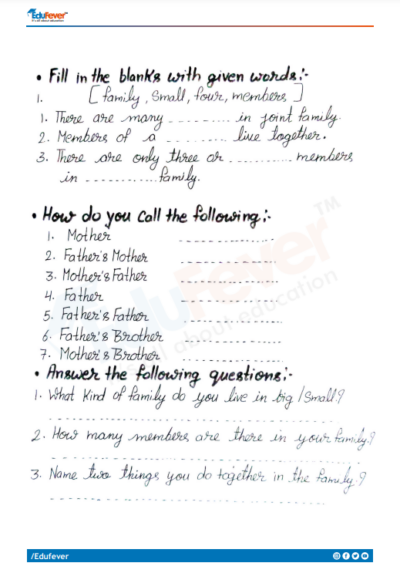 EduFever
• Fill in the blanks with given words:-
1. [family, Small, four, members]
1. There are many .......... in joint family.
2. Members of a .......... live together.
3. There are only three or ........... members
in ............ family.
• How do you call the following:-
1. Mother ................
2. Father's Mother ................
3. Mother's Father ................
4. Father ................
5. Father's Father ................
6. Father's Brother ................
7. Mother's Brother ................
• Answer the following questions:-
1. What kind of family do you live in big/Small?
2. How many members are there in your family?
3. Name two things you do together in the family?
EduFever™
all about education
/Edufever